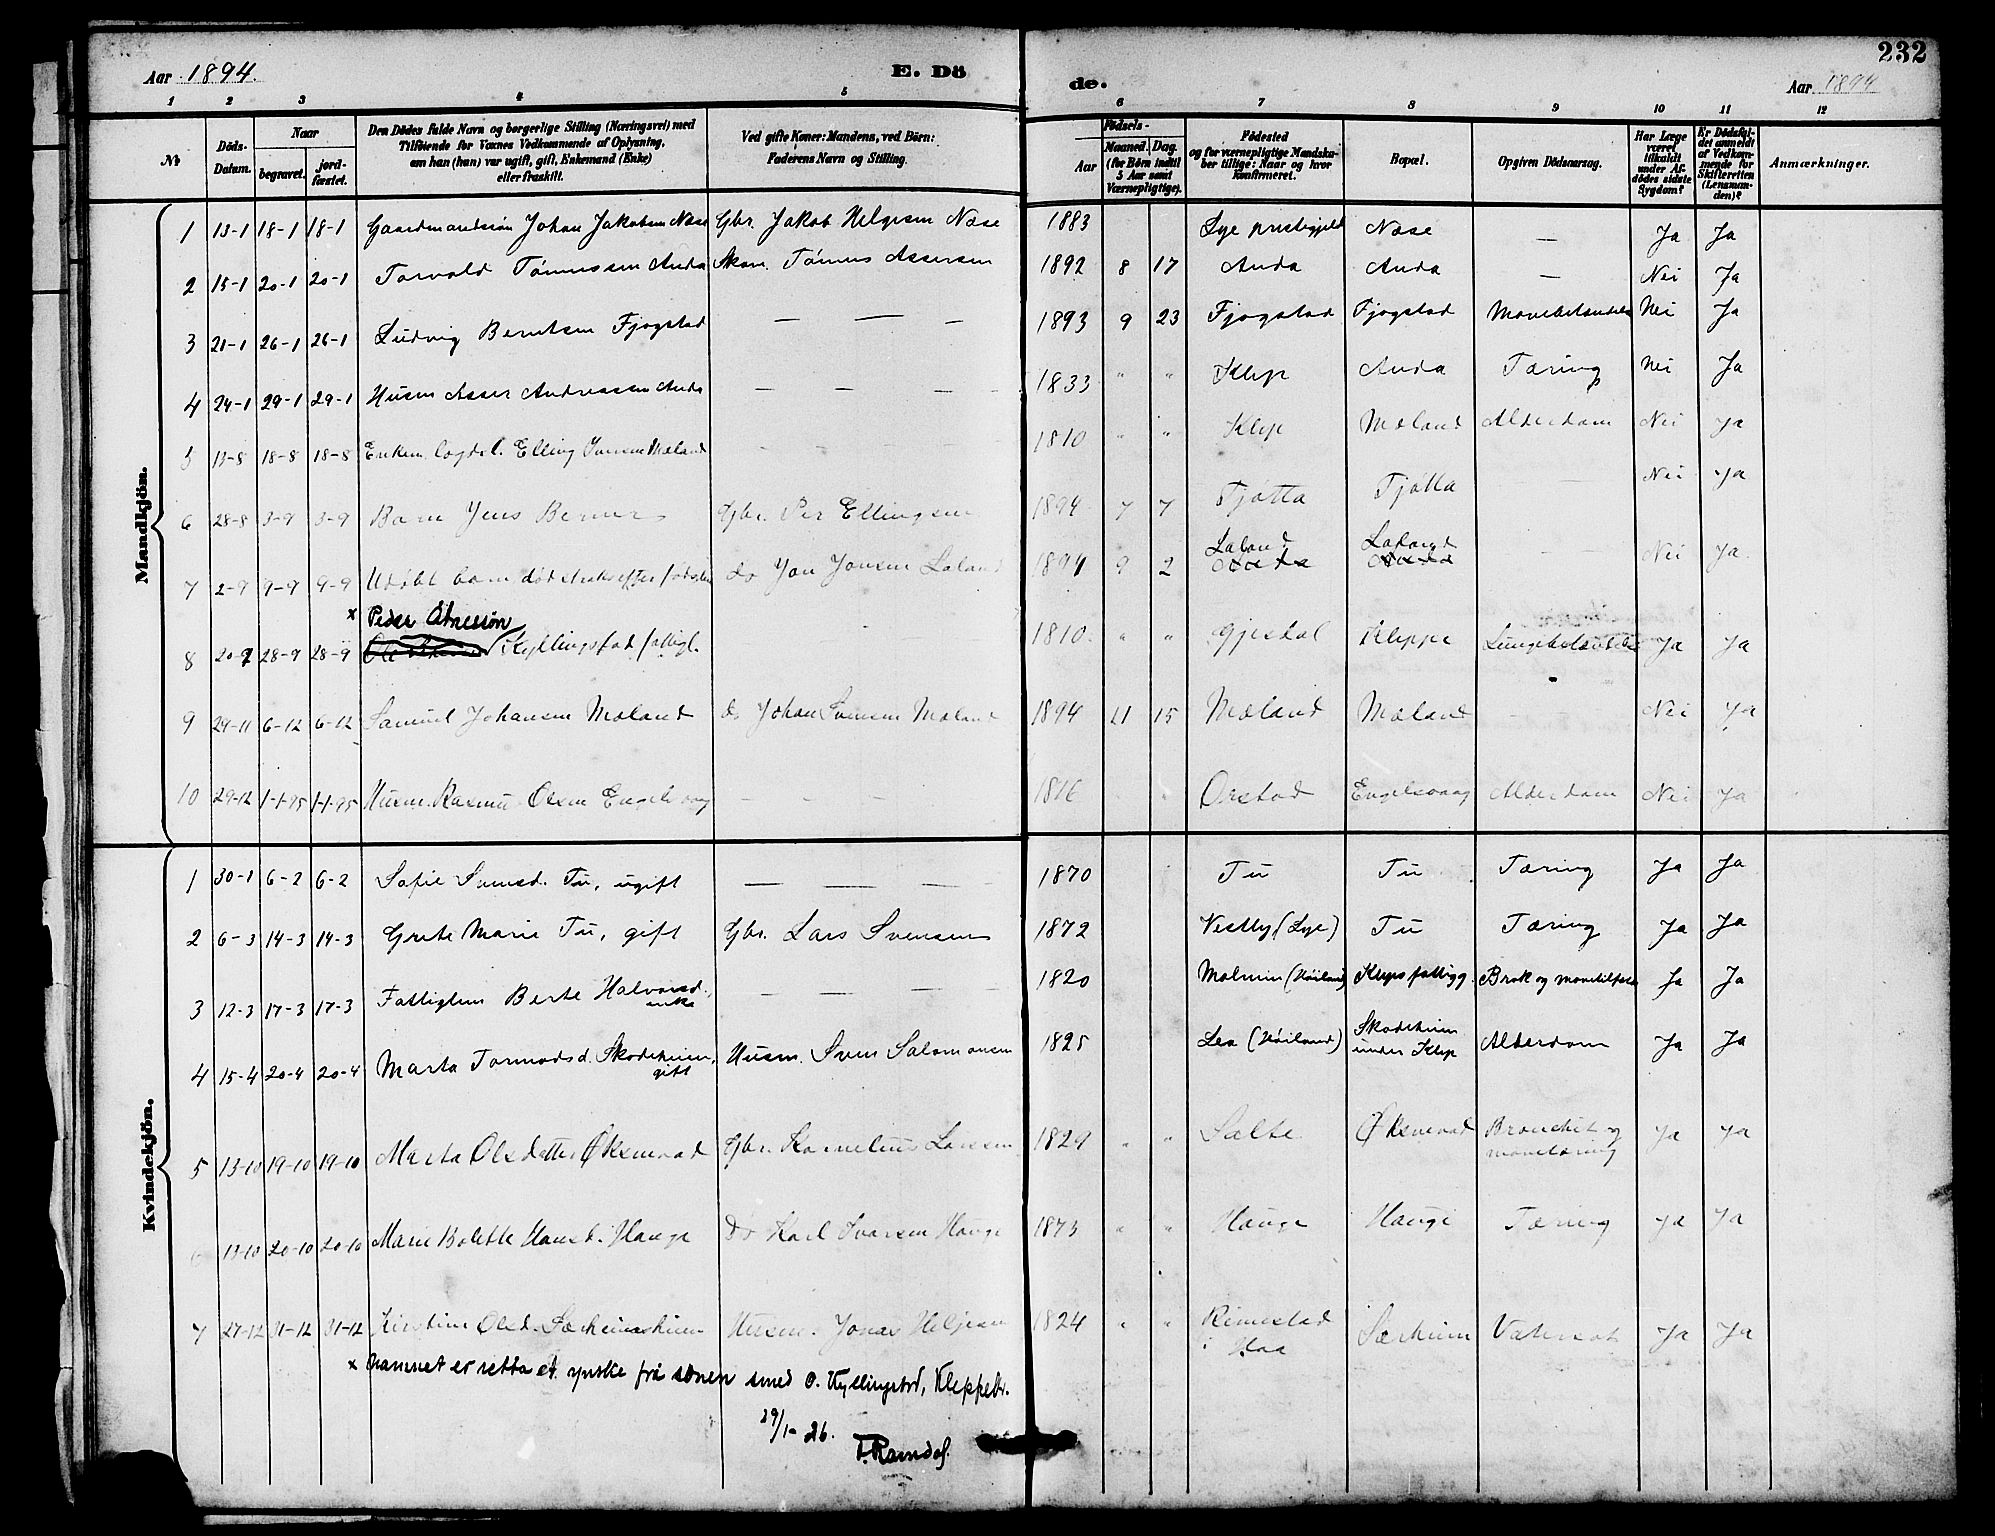 232
Aar 1894. E. Dö de. Aar 1894
1 2 3 4 5 6 7 8 9 10 11 12
No Döds-Datum. Naar begravet. jordfæstet. Den Dödes fulde Navn og borgerlige Stilling (Næringsvei) med Tilföiende for Voxnes Vedkommende af Oplysning, om han (hun) var ugift, gift, Enkemand (Enke) eller fraskilt. Ved gifte Koner: Mandens, ved Börn: Faderens Navn og Stilling. Födsels- Aar Maaned. Dag. (for Börn indtil 5 Aar samt Værnepligtige). Födested og for værnepligtige Mandskaber tillige: Naar og hvor konfirmeret. Bopæl. Opgiven Dödsaarsag. Har Læge været tilkaldt under Afdödes sidste Sygdom? Er Dödsfaldet anmeldt af Vedkommende for Skifteretten (Lensmanden)? Anmærkninger.
Mandkjön.
1 13-1 18-1 18-1 Gaardmandssøn Johan Jakobsen Næse Gbr. Jakob Helgesen Næse 1883 Lye prestegjeld Næse — Ja Ja
2 15-1 20-1 20-1 Torvald Tønnessen Anda Tønnes Assersen 1892 8 17 Anda Anda — Nei Ja
3 21-1 26-1 26-1 Ludvig Berntsen Fjogstad — — — 1893 9 23 Fjogstad Fjogstad Nei Ja
4 24-1 29-1 29-1 Husm Asser Andreassen Anda — — — 1833 " " Klep Anda Tæring Nei Ja
5 13-8 18-8 18-8 Enkem. Elling Iversen Mæland - - - 1810 " " Klep Mæland Alderdom Nei Ja
6 28-8 3-9 3-9 Barn Jens Berner Gbr. Per Ellingsen 1894 7 7 Tjøtta Tjøtta — Nei Ja
7 2-9 9-9 9-9 Udøbt barn død straks efter fødselen do Jon Jonsen Laland 1894 9 2 Laland Laland - - Nei Ja
x Peder Aanessøn
8 20-9 28-9 28-9 Kyllingstad fattigl. 1810 " " Gjesdal Kleppe Lungebetændelse Ja Ja
9 29-11 6-12 6-12 Samuel Johansen Mæland do Johan Svensen Mæland 1894 11 15 Mæland Mæland - - Nei Ja
10 29-12 1-1-95 1-1-95 Husm. Rasmus Olsen Engelsvaag - - - 1816 " Orstad Engelsvaag Alderdom Nei Ja
Kvindekjön.
1 30-1 6-2 6-2 Sofie Svensd. Tu, ugift — — — 1870 Tu Tu Tæring Ja Ja
2 6-3 14-3 14-3 Grete Marie Tu, gift Gbr. Lars Svensen 1872 Vestly (Lye) Tu Tæring Ja Ja
3 12-3 17-3 17-3 Fattiglem Berte Halvorsd. enke — — — 1820 Malmin (Høiland) Kleps fattigg. Brok og Ja Ja
4 15-4 20-4 20-4 Marta Tormodsd. Skadeheim, gift Husm. Sven Salomonsen 1825 Lea (Høiland) Skadeheim under Klep Alderdom Ja Ja
5 13-10 19-10 19-10 Marta Olsdatter Øksnevad Gbr. Kornelius Larsen 1829 " " Salte Øksnevad Bronchit og mavetæring Ja Ja
6 13-10 20-10 20-10 Marie Bolette Hansd. Hauge Do Karl Ivarsen Hauge 1873 " " Hauge Hauge Tæring Ja Ja
7 27-12 31-12 31-12 Kirstine Olsd. Særheim Husm. Jonas Heljesen 1824 " " Rimestad i Haa Særheim Vatersot Ja Ja
x Namnet er retta et. ynske frå sonen smed O. Kyllingstad, Kleppekr.
29/1-26.
T. Ramdal.